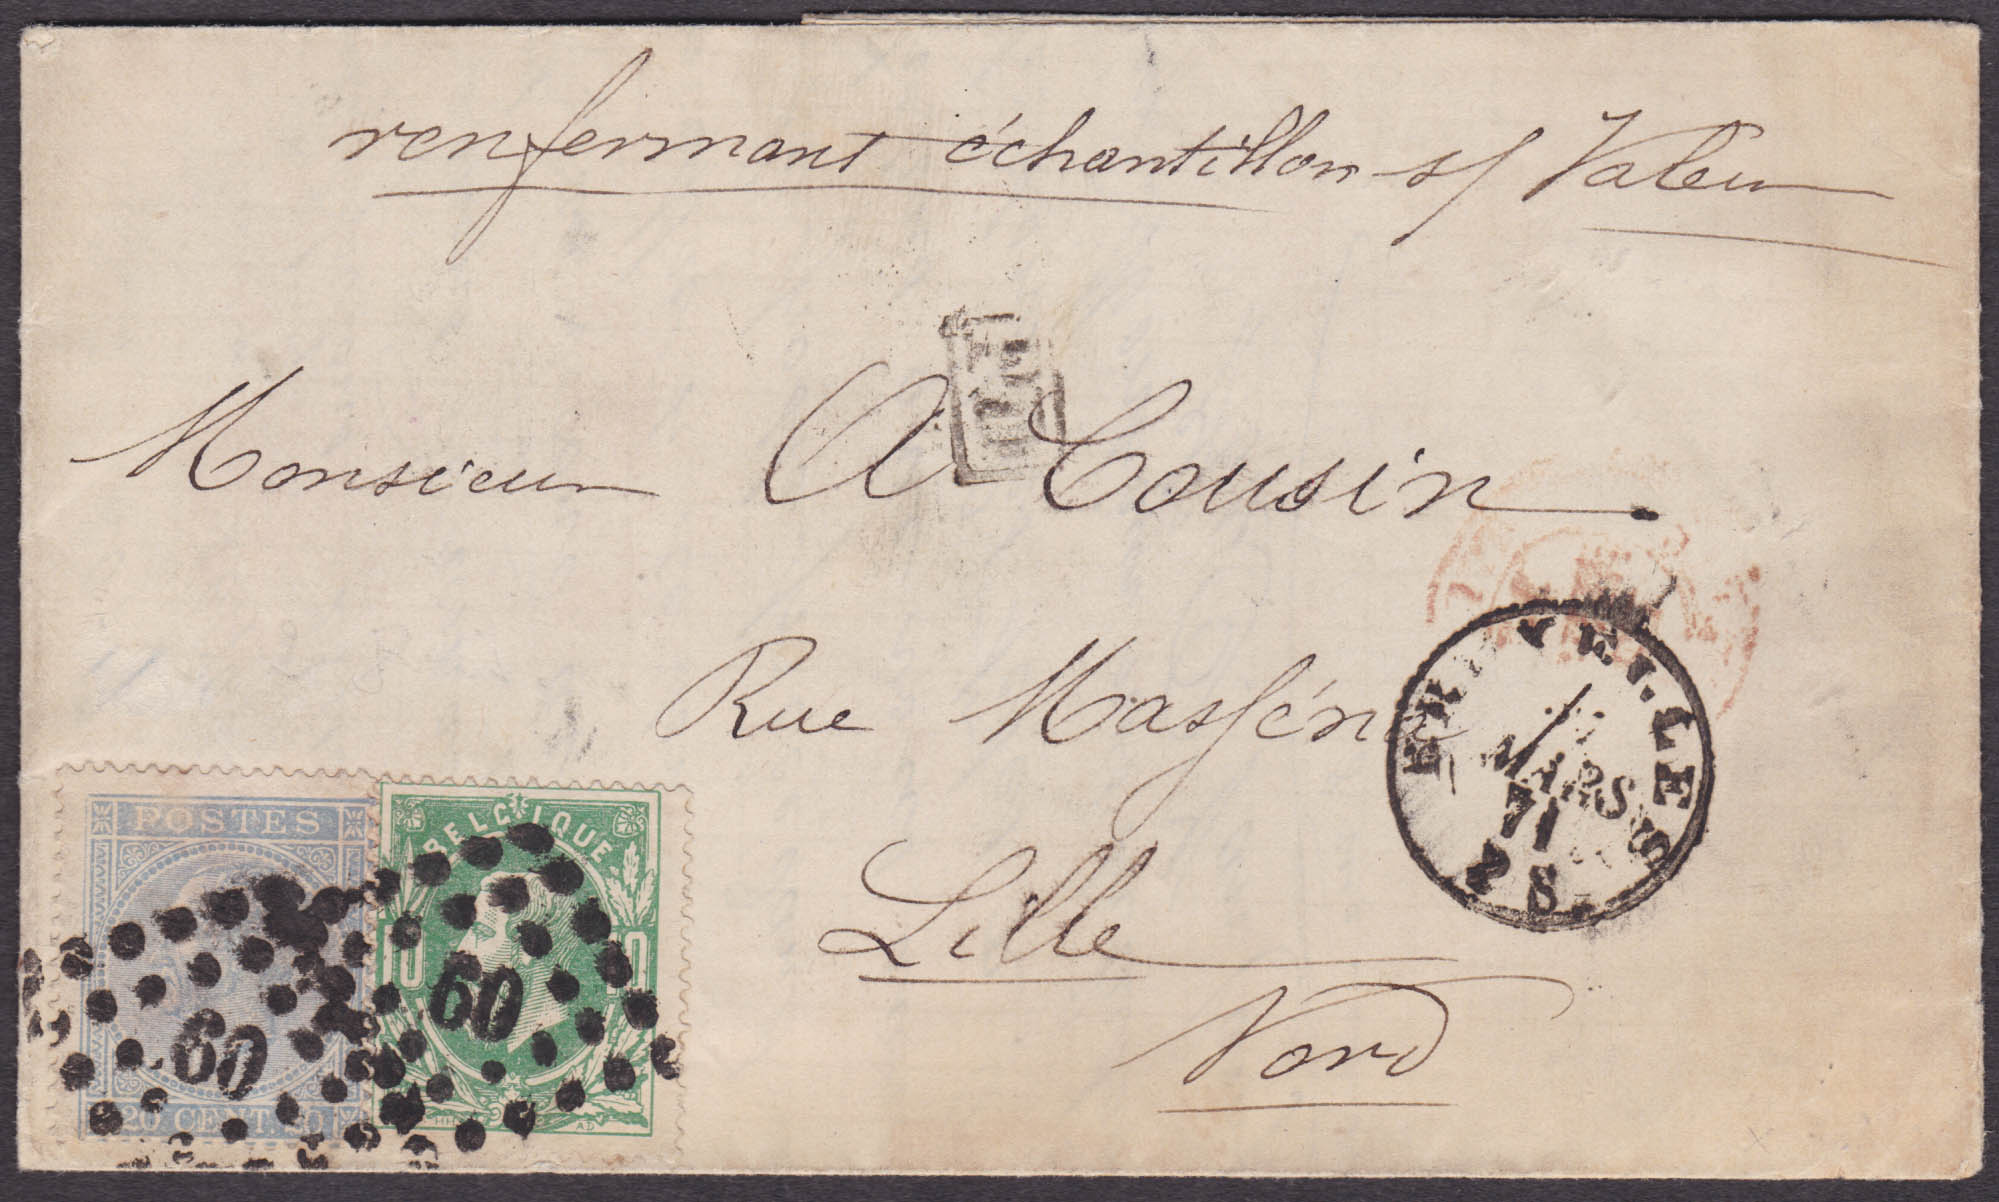 renfermant échantillon s/ Valeur
PD
Monsieur A Cousin
Rue Masséna
BRUXELLES
MARS
71
2 S.
Lille
Nord
POSTES
20 CENT. 20
60
BELGIQUE
10 10
60